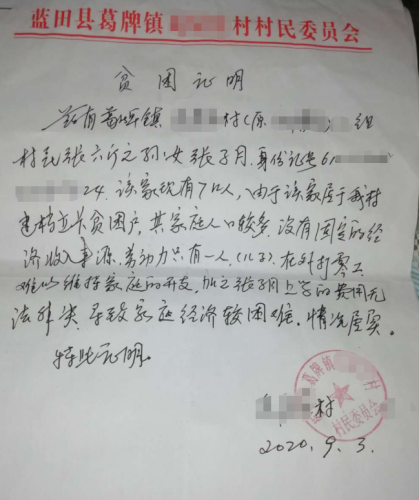 蓝田县葛牌镇 村村民委员会
贫困证明
兹有葛牌镇 村(原 组
村民张六斤之孙女张子月,身份证号61
24.该家现有7口人,由于该家属于我村
建档立卡贫困户,其家庭人口较多,没有固定的经
济收入来源,劳动力只有一人(儿子).在外打零工
难以维持家庭的开支,加之张子月上学的费用无
法解决,导致家庭经济较困难.情况属实.
特此证明.
葛牌镇 村
村民委员会
村
2020.9.3.